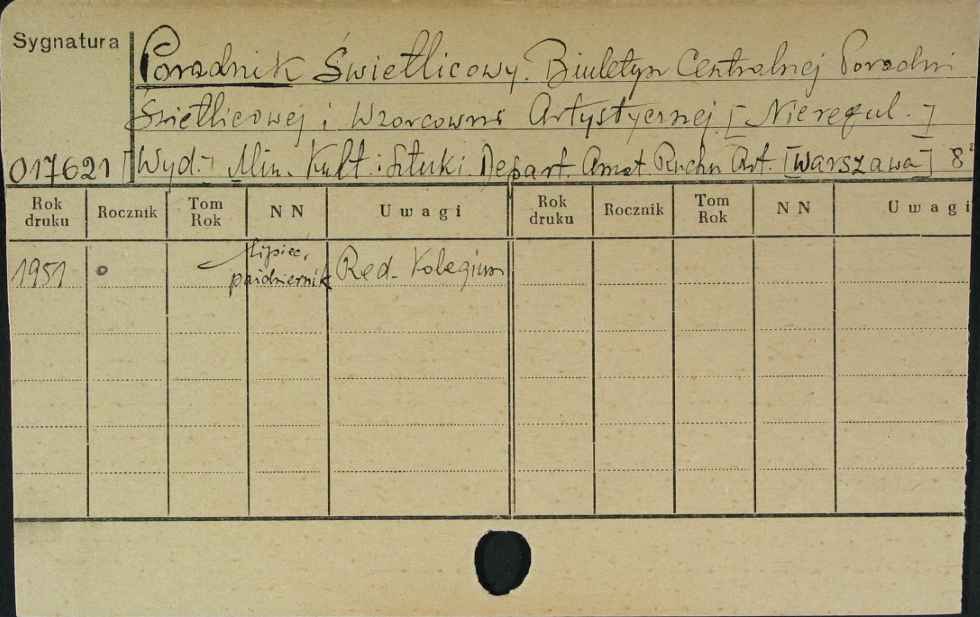 Sygnatura
Poradnik Świetlicowy. Biuletyn Centralnej Poradni
Świetlicowej i Wzorcowni Artystycznej [Nieregul.]
017621 [Wyd.- Min. Kult. i Sztuki. Depart. Amat. Ruchu Art. [Warszawa] 8°
Rok druku Rocznik Tom Rok NN Uwagi Rok druku Rocznik Tom Rok NN Uwagi
lipiec,
1951 październik Red. Kolegium